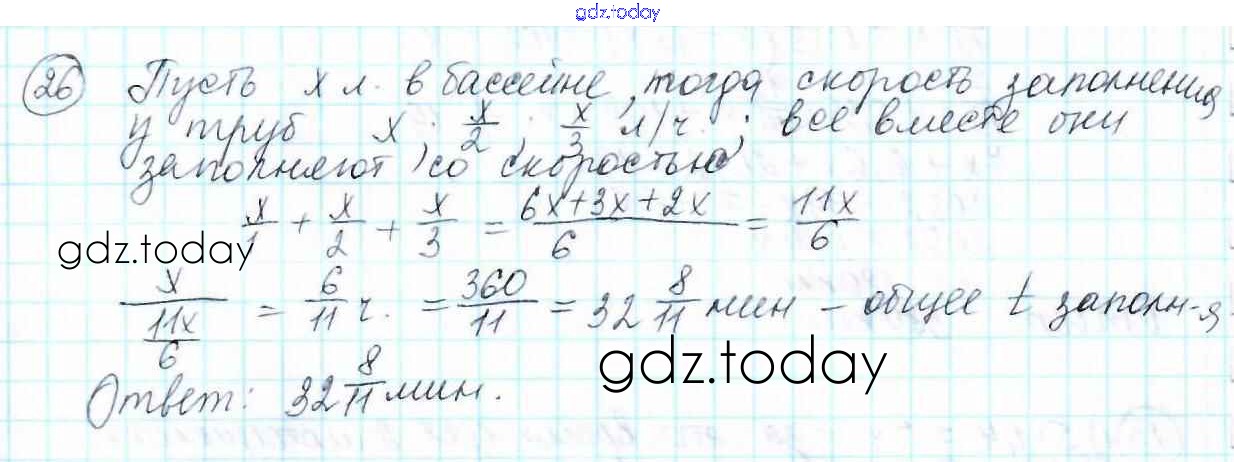 gdz.today
26 Пусть x л. в бассейне, тогда скорость заполнения
у труб x; x/2; x/3 л/ч.; все вместе они
заполняют со скоростью
x/1 + x/2 + x/3 = (6x+3x+2x)/6 = 11x/6
gdz.today
x/(11x/6) = 6/11 ч. = 360/11 = 32 8/11 мин – общее t заполн-я
gdz.today
Ответ: 32 8/11 мин.